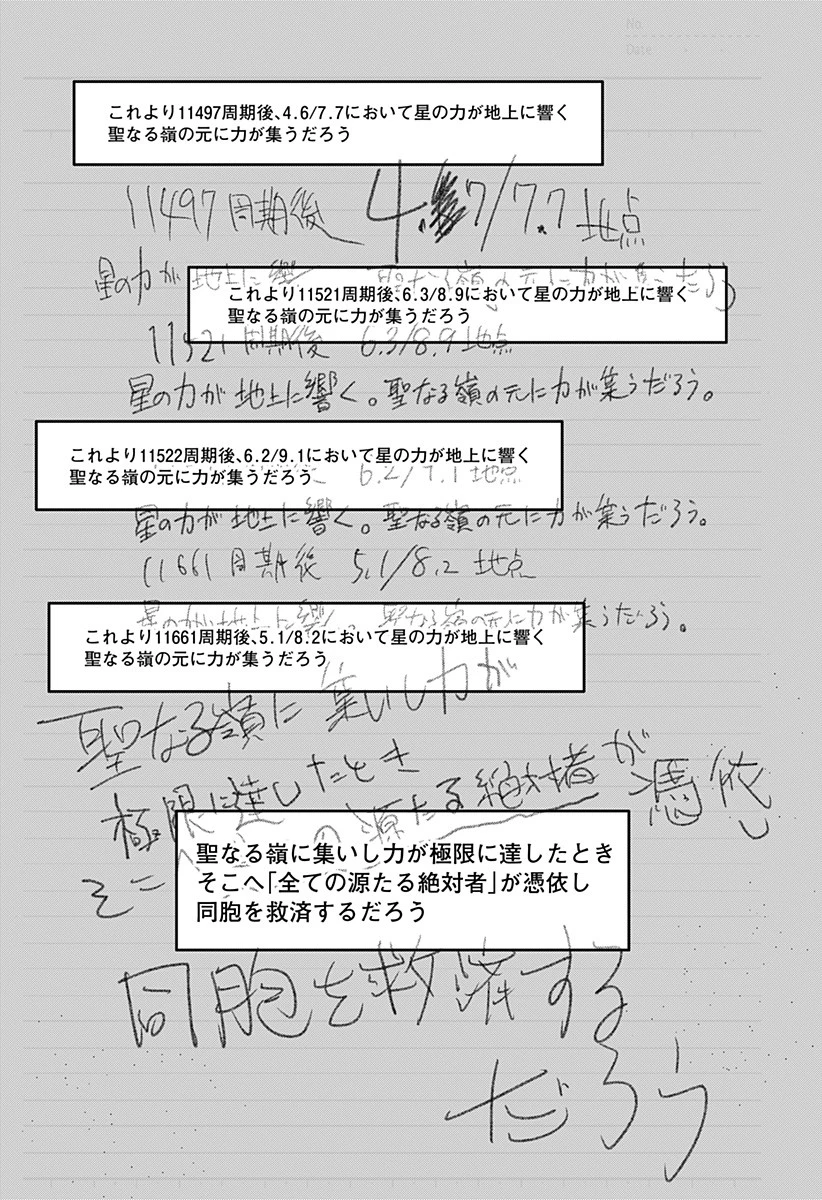 No.
Date
これより11497周期後、4.6/7.7において星の力が地上に響く
聖なる嶺の元に力が集うだろう
11497周期後 4.7/7.7 地点
星の力が 地上に響 聖なる嶺の元に力が集うだろう
これより11521周期後、6.3/8.9において星の力が地上に響く
聖なる嶺の元に力が集うだろう
11521周期後 6.3/8.9地点
星の力が地上に響く。聖なる嶺の元に力が集うだろう。
これより11522周期後、6.2/9.1において星の力が地上に響く
聖なる嶺の元に力が集うだろう
6.2/9.1地点
星の力が地上に響く。聖なる嶺の元に力が集うだろう。
11661周期後 5.1/8.2 地点
星の力が地上に響 聖なる嶺の元に力が集うだろう。
これより11661周期後、5.1/8.2において星の力が地上に響く
聖なる嶺の元に力が集うだろう
聖なる嶺に集いし力が
極限に達したとき
そこへ の源たる絶対者が憑依し
聖なる嶺に集いし力が極限に達したとき
そこへ「全ての源たる絶対者」が憑依し
同胞を救済するだろう
同胞を救済する
だろう